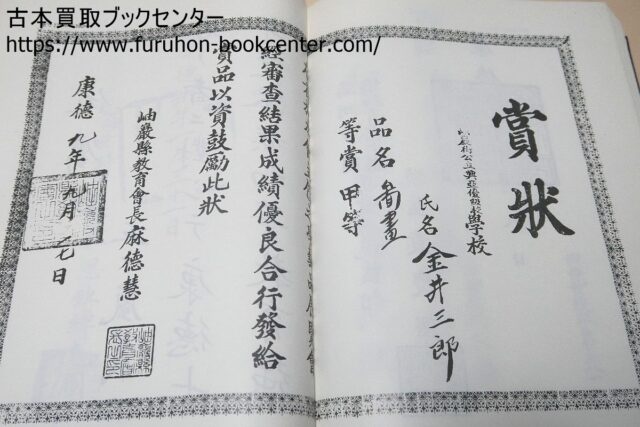 古本買取ブックセンター
https://www.furuhon-bookcenter.com/
賞狀
學校
氏名 金井三郎
品名 圖畫
等賞 甲等
經審查結果成績優良合行發給
賞品以資鼓勵此狀
岫巖縣教育會長 麻德慧
康德九年九月 日